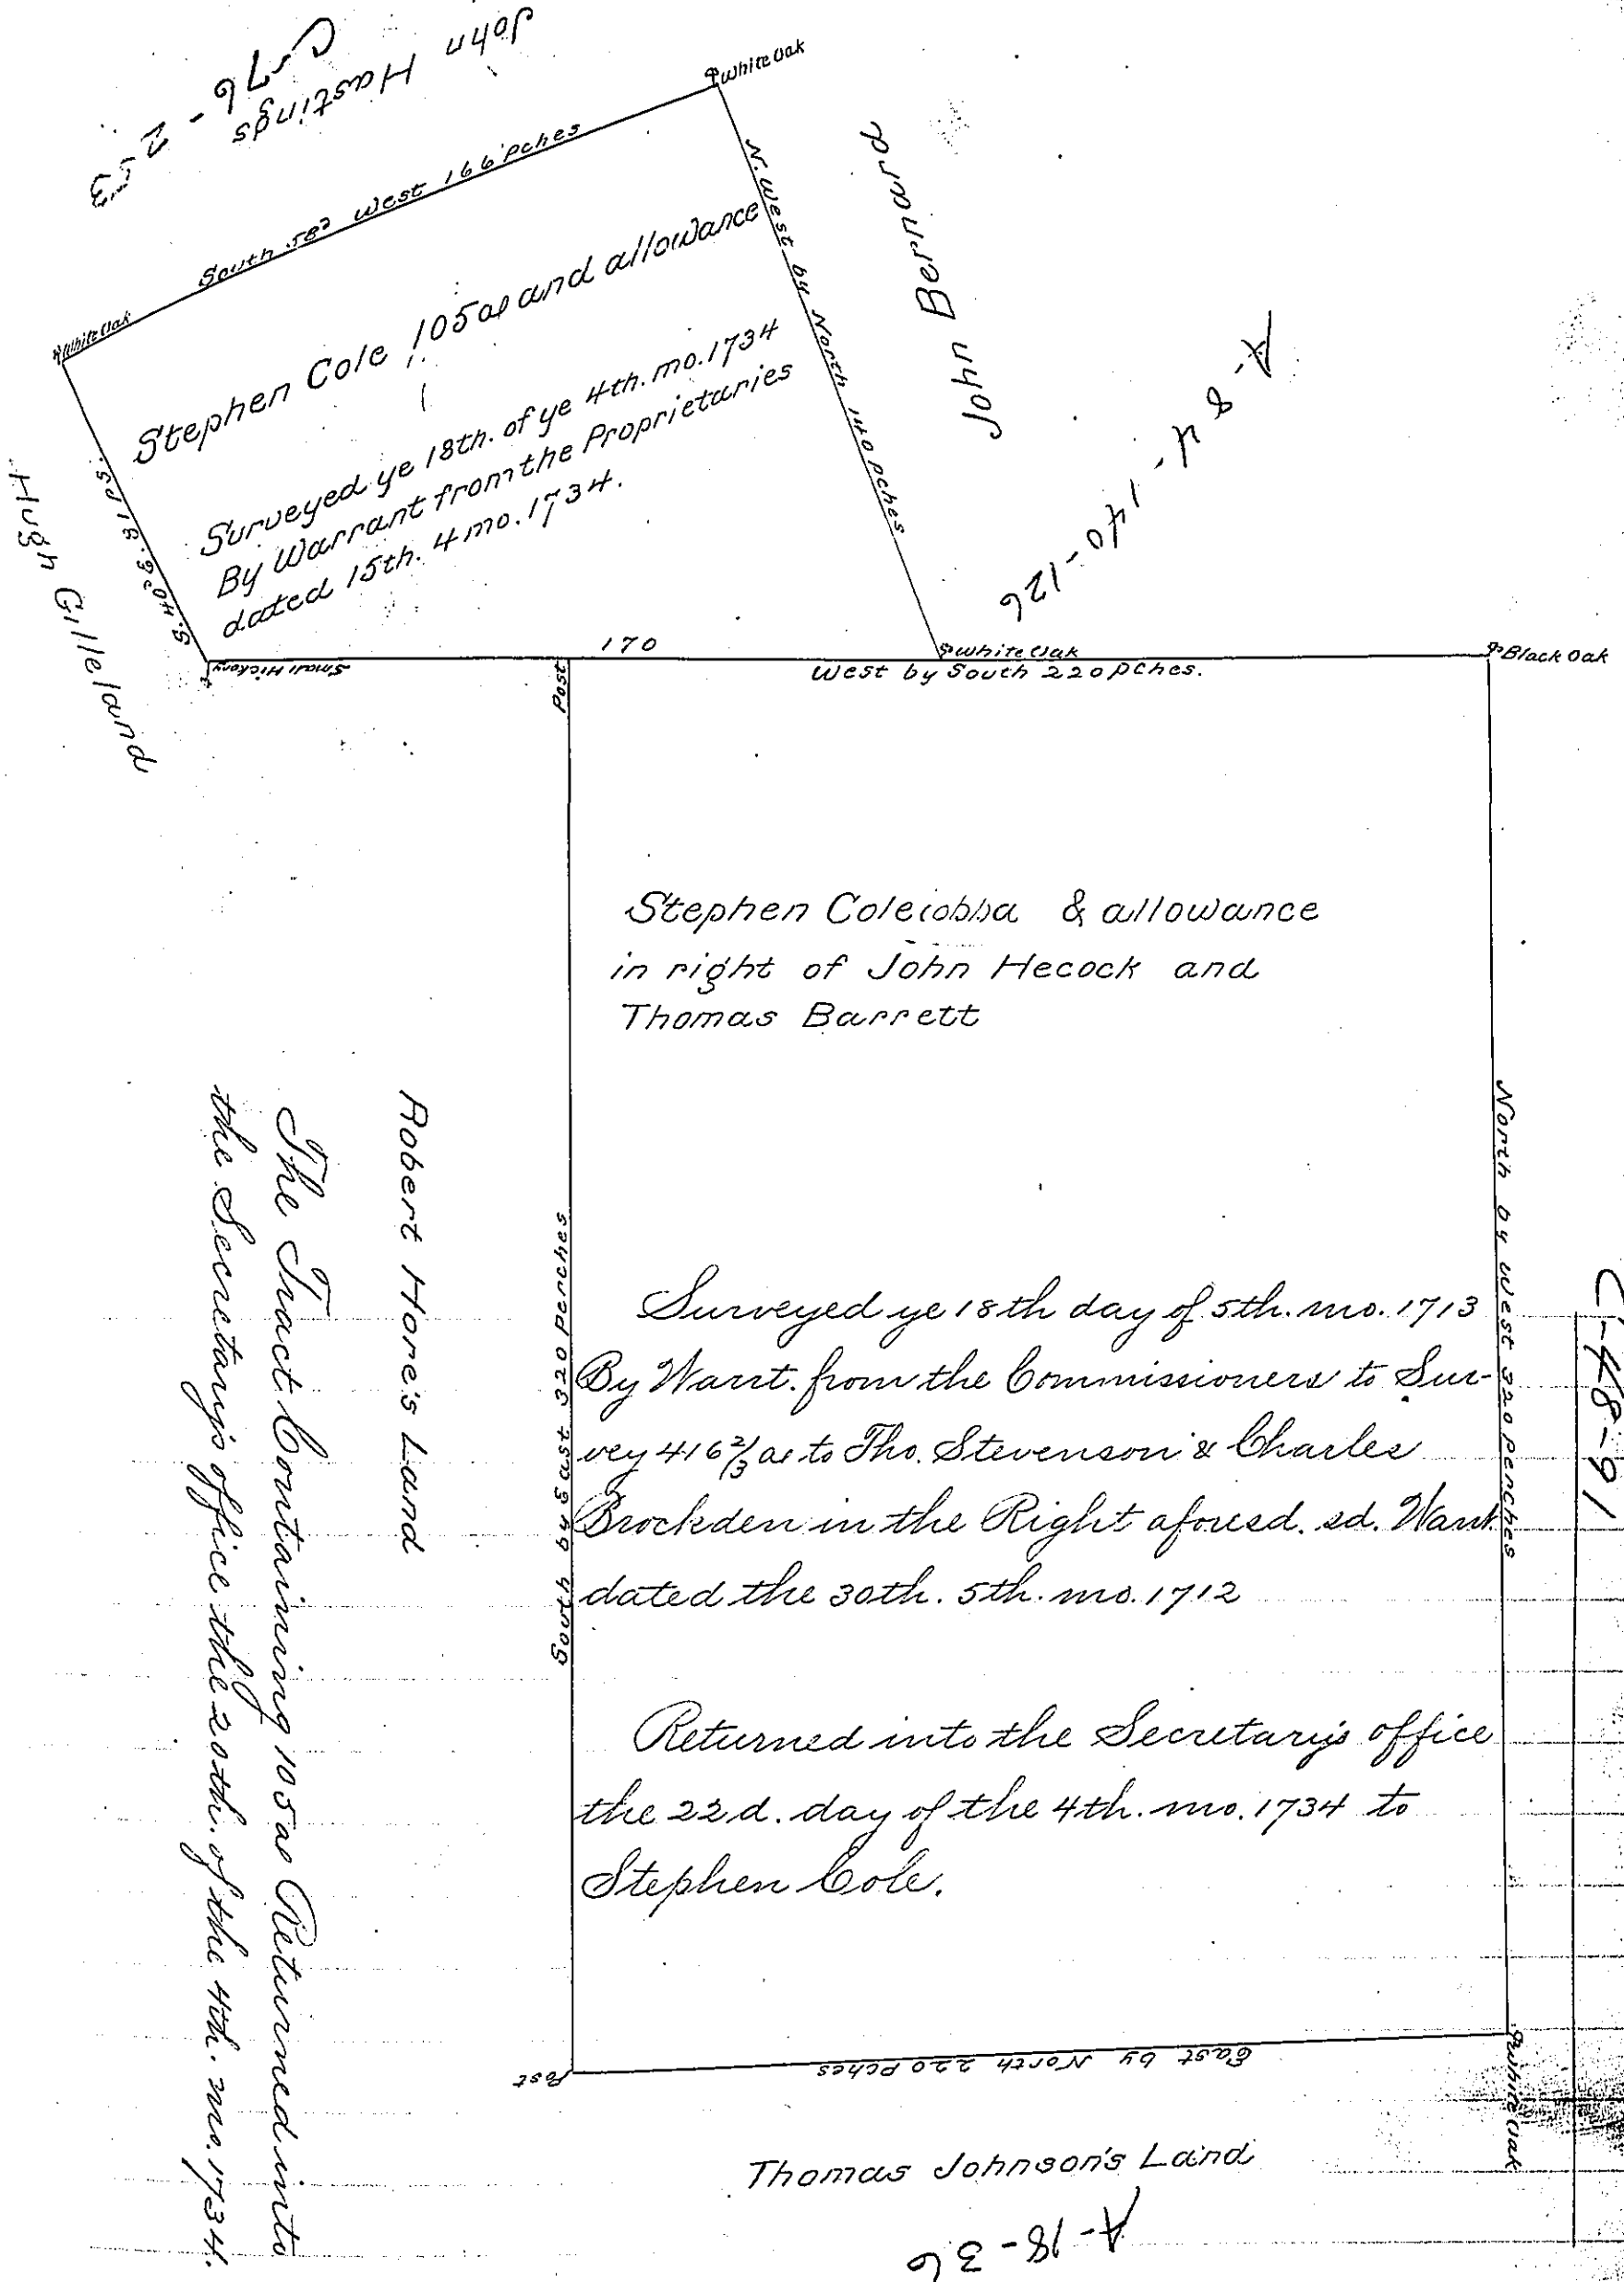 C-76-253
John Hastings
White Oak
South 58° West 166 pches
White Oak
N. West by North 140 pches
John Bernard
Stephen Cole 105 as and allowance
Surveyed ye 18th. of ye 4th. mo. 1734
By Warrant from the Proprietaries
dated 15th. 4 mo. 1734.
Hugh Gilleland
A-84-140-126
170
White Oak
Black Oak
Small Hickory
Post
West by South 220 pches.
Stephen Cole & allowance
in right of John Hecock and
Thomas Barrett
North by West 320 perches
South by East 320 perches
Robert Hore's Land
The Tract Containing 105 as Returned into
the Secretary's office the 20th. of the 4th. mo. 1734.
C-48-91
Surveyed ye 18th day of 5th. mo. 1713
By Warrt. from the Commissioners to Sur-
vey 416 2/3 as to Tho. Stevenson & Charles
Brockden in the Right aforesd. sd. Warrt
dated the 30th. 5th. mo. 1712
Returned into the Secretary's office
the 22d. day of the 4th. mo. 1734 to
Stephen Cole.
East by North 220 Pches
Post
White Oak
Thomas Johnson's Land
A-18-36